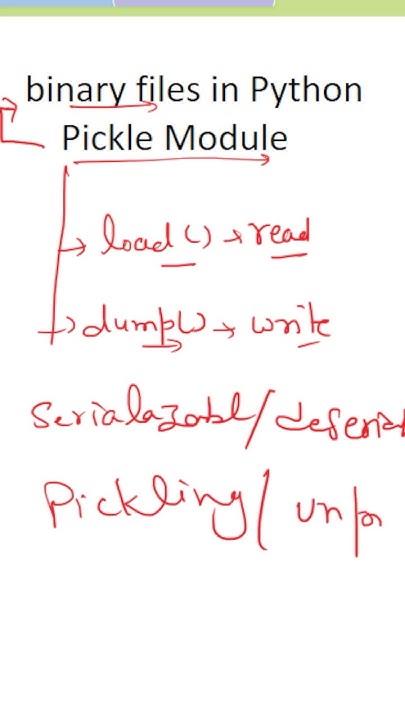 binary files in Python
Pickle Module
load() → read
dump() → write
Serialazabl/deseria
Pickling/ unp